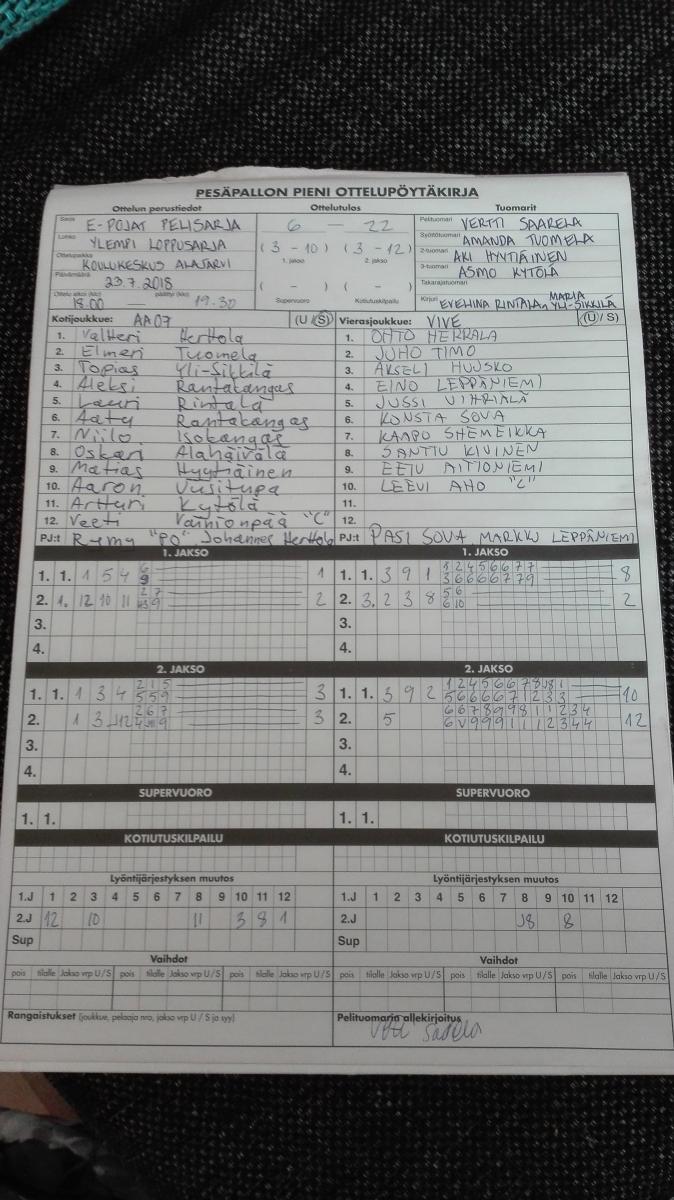 PESÄPALLON PIENI OTTELUPÖYTÄKIRJA
Ottelun perustiedot Ottelutulos Tuomarit
Sarja E-POJAT PELISARJA 6 — 22 Pelituomari VERTTI SAARELA
Lohko YLEMPI LOPPUSARJA (3 - 10) (3 - 12) Syöttötuomari AMANDA TUOMELA
1. jakso 2. jakso
Ottelupaikka KOULUKESKUS ALAJÄRVI 2-tuomari AKI HYYTIÄINEN
Päivämäärä 23.7.2018 ( - ) ( - ) 3-tuomari ASMO KYTÖLÄ
Takarajatuomari
Ottelu alkoi (klo) 18.00 — päättyi (klo) 19.30 Supervuoro Kotiutuskilpailu Kirjuri EVELIINA RINTALA, MARIA YLI-SIKKILÄ
Kotijoukkue: AA07 (U / S) Vierasjoukkue: VIVE (U / S)
1. Valtteri Herttola 1. OHTO HERRALA
2. Elmeri Tuomela 2. JUHO TIMO
3. Topias Yli-Sikkilä 3. AKSELI HUUSKO
4. Aleksi Rantakangas 4. EINO LEPPÄNIEMI
5. Lauri Rintala 5. JUSSI VIHRIÄLÄ
6. Aatu Rantakangas 6. KONSTA SOVA
7. Niilo Isokangas 7. KAAPO SHEMEIKKA
8. Oskari Alahäivälä 8. SANTTU KIVINEN
9. Matias Hyytiäinen 9. EETU AITTONIEMI
10. Aaron Uusitupa 10. LEEVI AHO "C"
11. Artturi Kytölä 11.
12. Veeti Vainionpää "C" 12.
PJ:t "PO" Johannes Herttola PJ:t PASI SOVA, MARKKU LEPPÄNIEMI
1. JAKSO 1. JAKSO
1. 1. 1 5 4 6 9 1 1. 1. 3 9 1 1 2 4 5 6 6 7 7 8
3 6 6 6 6 7 7 9
2. 1. 12 10 11 2 7 2 2. 3. 2 3 8 5 6 2
6 10
3. 3.
4. 4.
2. JAKSO 2. JAKSO
1. 1. 1 3 4 2 1 5 3 1. 1. 3 9 2 10
5 5 9
2. 1 3 2 6 7 3 2. 5 12
3. 3.
4. 4.
SUPERVUORO SUPERVUORO
1. 1. 1. 1.
KOTIUTUSKILPAILU KOTIUTUSKILPAILU
Lyöntijärjestyksen muutos Lyöntijärjestyksen muutos
1.J 1 2 3 4 5 6 7 8 9 10 11 12 1.J 1 2 3 4 5 6 7 8 9 10 11 12
2.J 12 10 11 3 8 1 2.J J8 8
Sup Sup
Vaihdot Vaihdot
pois tilalle Jakso vrp U / S pois tilalle Jakso vrp U / S pois tilalle Jakso vrp U / S pois tilalle Jakso vrp U / S pois tilalle Jakso vrp U / S pois tilalle Jakso vrp U / S
Rangaistukset (joukkue, pelaaja nro, jakso vrp U / S ja syy) Pelituomarin allekirjoitus